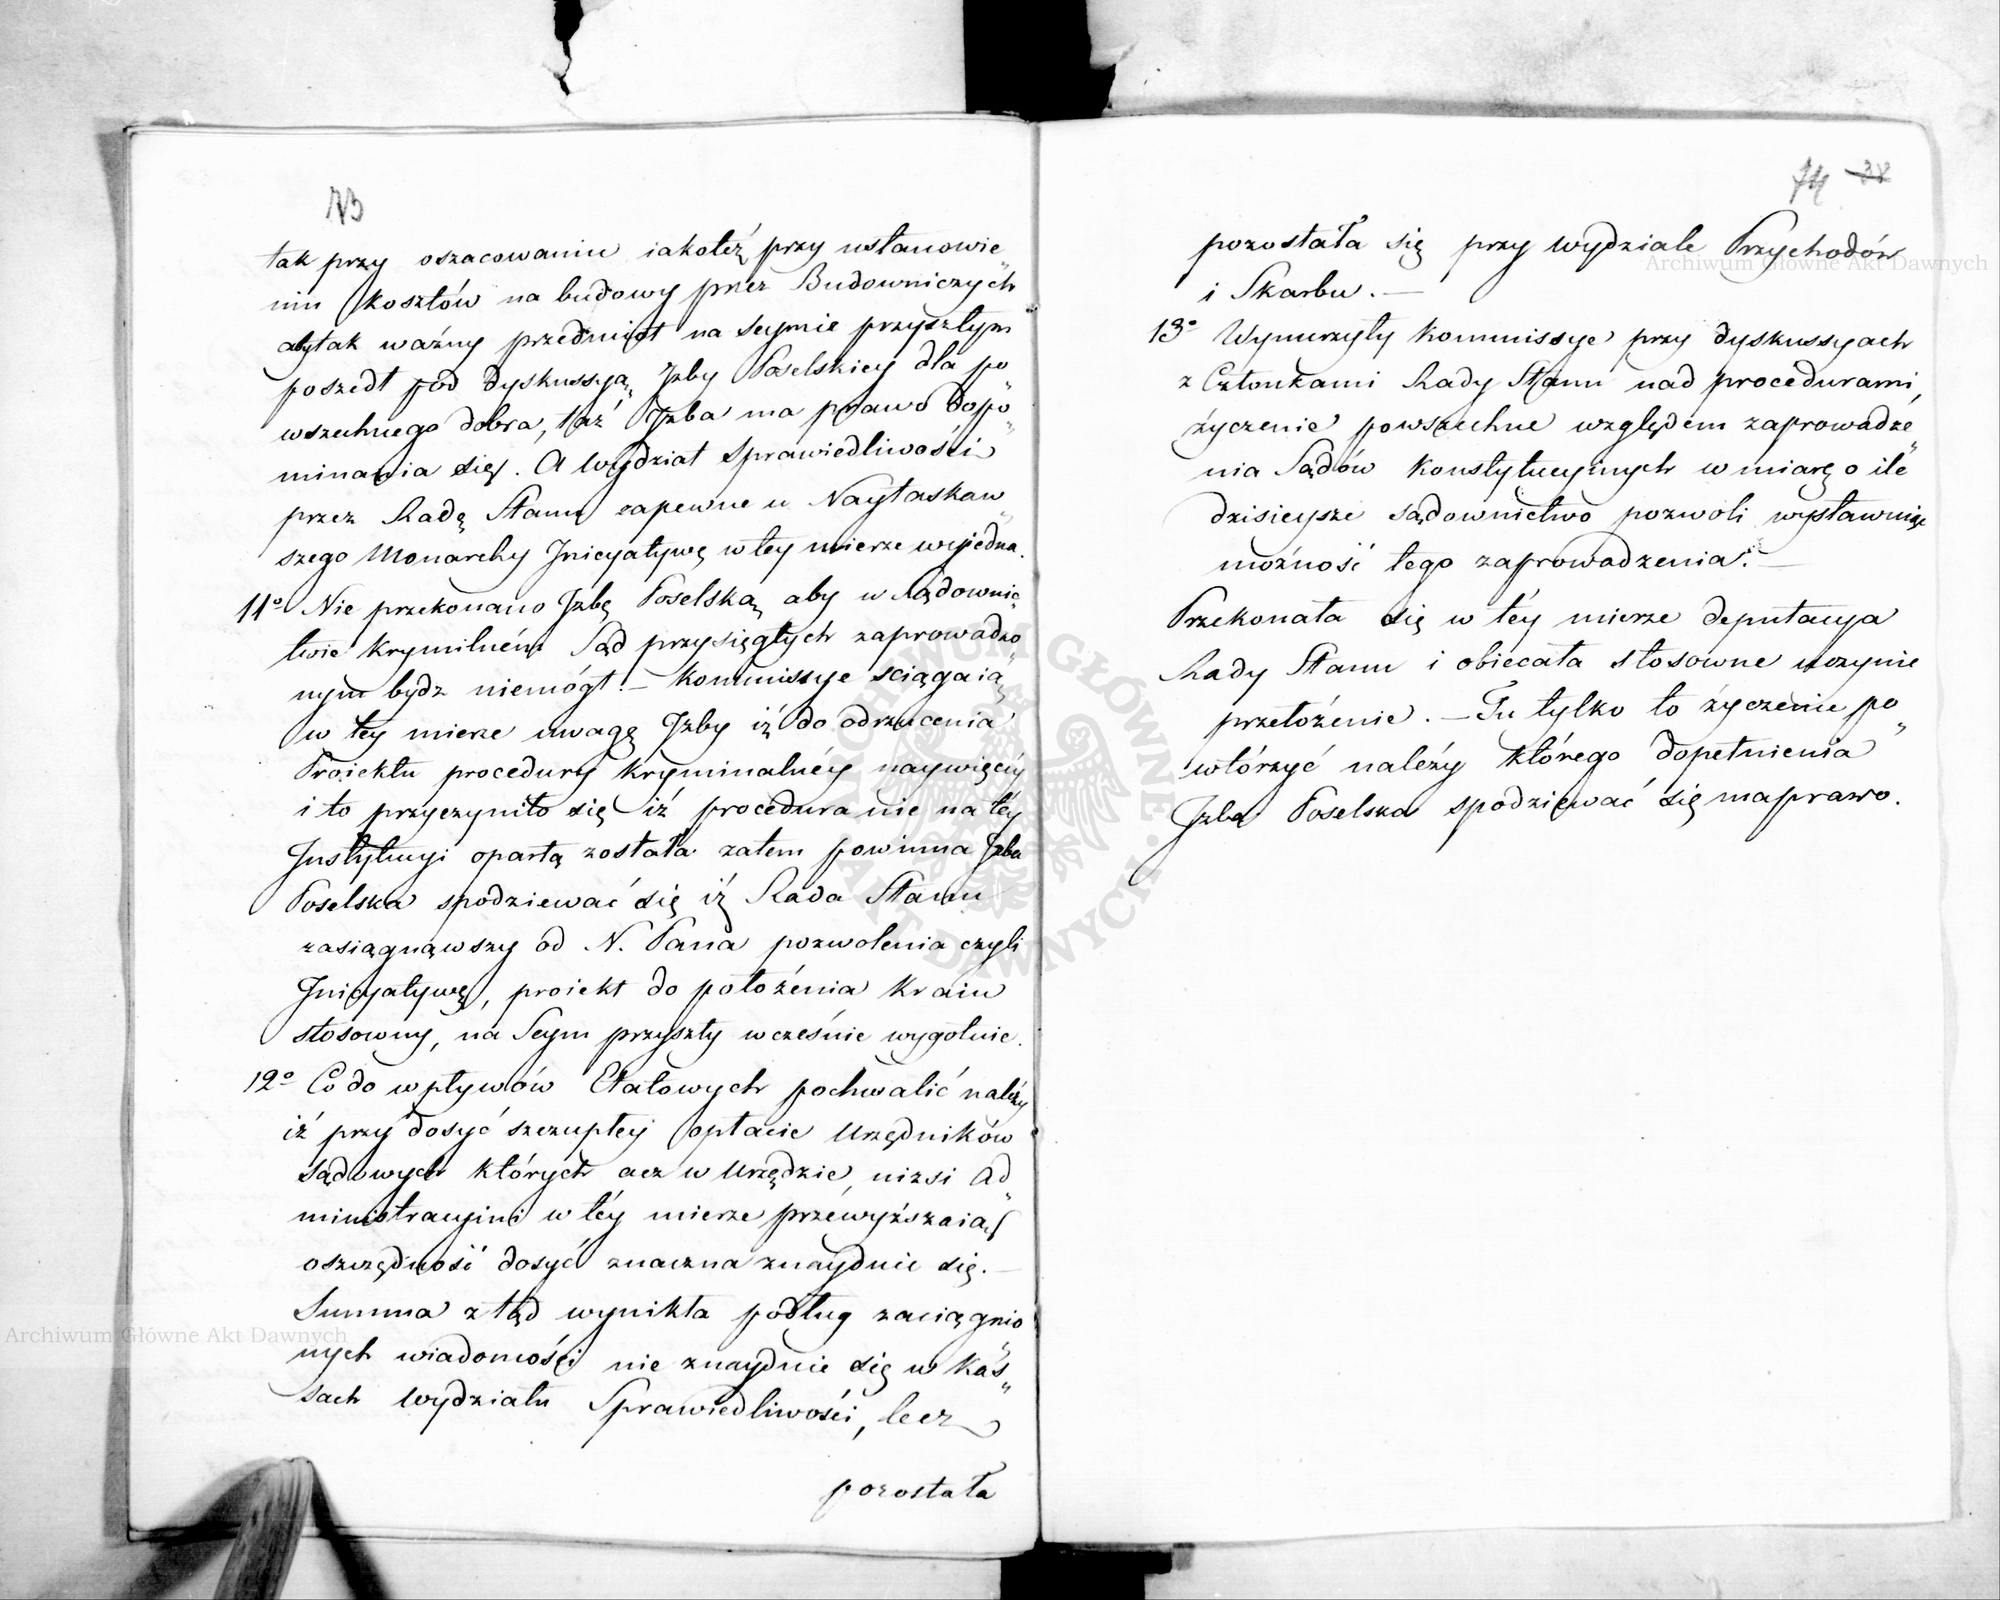 73
tak przy oszacowaniu iakoteż przy ustanowie„
niu kosztów na budowy przez Budowniczych
aby tak ważny przedmiot na Seymie przyszłym
poszedł pod dyskussyą Izby Poselskiey dla po„
wszechnego dobra, taż Izba ma prawo dopo„
minania się. A Wydział Sprawiedliwości
przez Radę Stanu zapewne u Nayłaskaw„
szego Monarchy Inicyatywę w tey mierze wyjedna.
11o Nie przekonano Izbę Poselską aby w Sądownic„
twie Krymilném Sąd przysięgłych zaprowadzo„
nym bydz niemógł. — Kommissye sciągaią
w tey mierze uwagę Izby iż do odrzucenia
Proiektu procedury Kryminalnéy naywięcéy
i to przyczyniło się iż procedura nie na téy
Instytucyi opartą została zatem powinna Izba
Poselska spodziewać się iż Rada Stanu
zasiągnąwszy od N. Pana pozwolenia czyli
Inicyatywę, proiekt do położenia Kraiu
stosowny, na Seym przyszły wcześnie wygotuie.
12o Co do wpływów Etatowych pochwalić należy
iż przy dosyć szczupłey opłacie Urzędników
Sądowych których acz w Urzędzie, nizsi Ad„
ministracyini w téy mierze przewyższaią
oszczędność dosyć znaczna znayduie się. —
Summa ztąd wynikła podług zaciągnio„
nych wiadomości nie znayduie się w Kas„
sach Wydziału Sprawiedliwości, lecz
pozostała
74 38
pozostała się przy Wydziale Przychodów
i Skarbu. —
13o Wynurzyły Kommissye przy dyskussyach
z Członkami Rady Stanu nad procedurami,
życzenie powszechne względem zaprowadze„
nia Sądów Konstytucyinych w miarę o ile
dzisieysze sądownictwo pozwoli wystawując
możność tego zaprowadzenia. —
Przekonała się w téy mierze deputacya
Rady Stanu i obiecała stosowne uczynie
przełożenie. — Tu tylko to życzenie po„
wtórzyć należy którego dopełnienia
Izba Poselska spodziewać się ma prawo.
Archiwum Główne Akt Dawnych
Archiwum Główne Akt Dawnych
ARCHIWUM GŁÓWNE AKT DAWNYCH